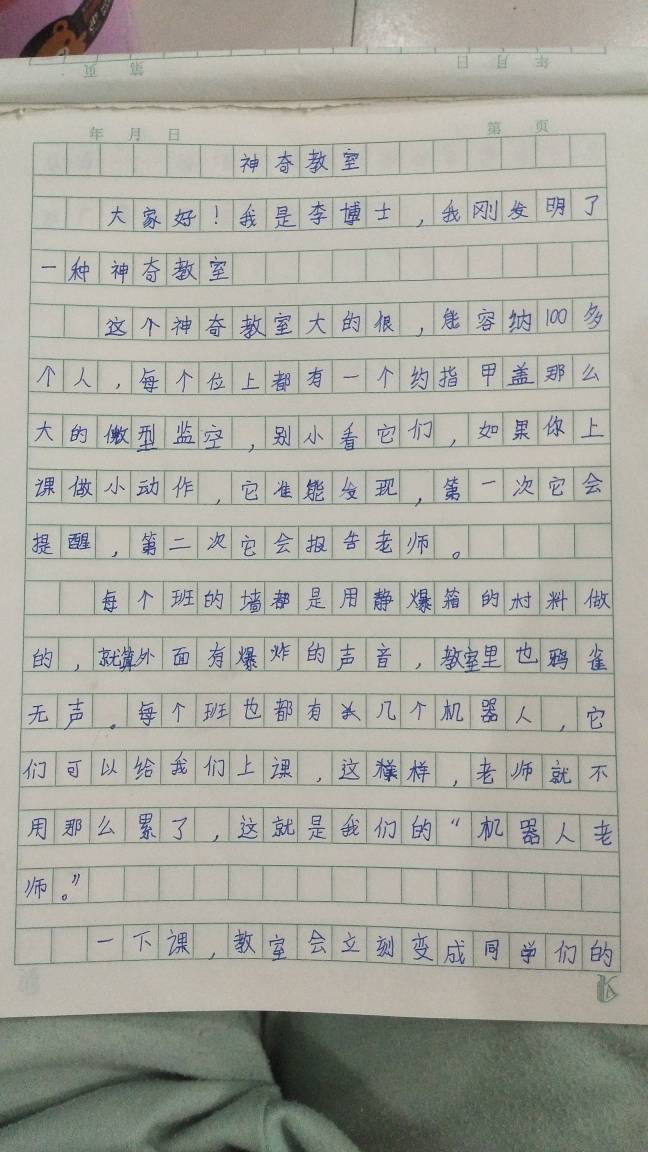 第 页
年 月 日
年 月 日
第 页
神奇教室
大家好！我是李博士，我刚发明了
一种神奇教室
这个神奇教室大的很，能容纳100多
个人，每个位上都有一个约指甲盖那么
大的微型监空，别小看它们，如果你上
课做小动作，它准能发现，第一次它会
提醒，第二次它会报告老师。
每个班的墙都是用静爆箱的材料做
的，就算外面有爆炸的声音，教室里也鸦雀
无声。每个班也都有几个机器人，它
们可以给我们上课，这样，老师就不
用那么累了，这就是我们的“机器人老
师。”
一下课，教室会立刻变成同学们的